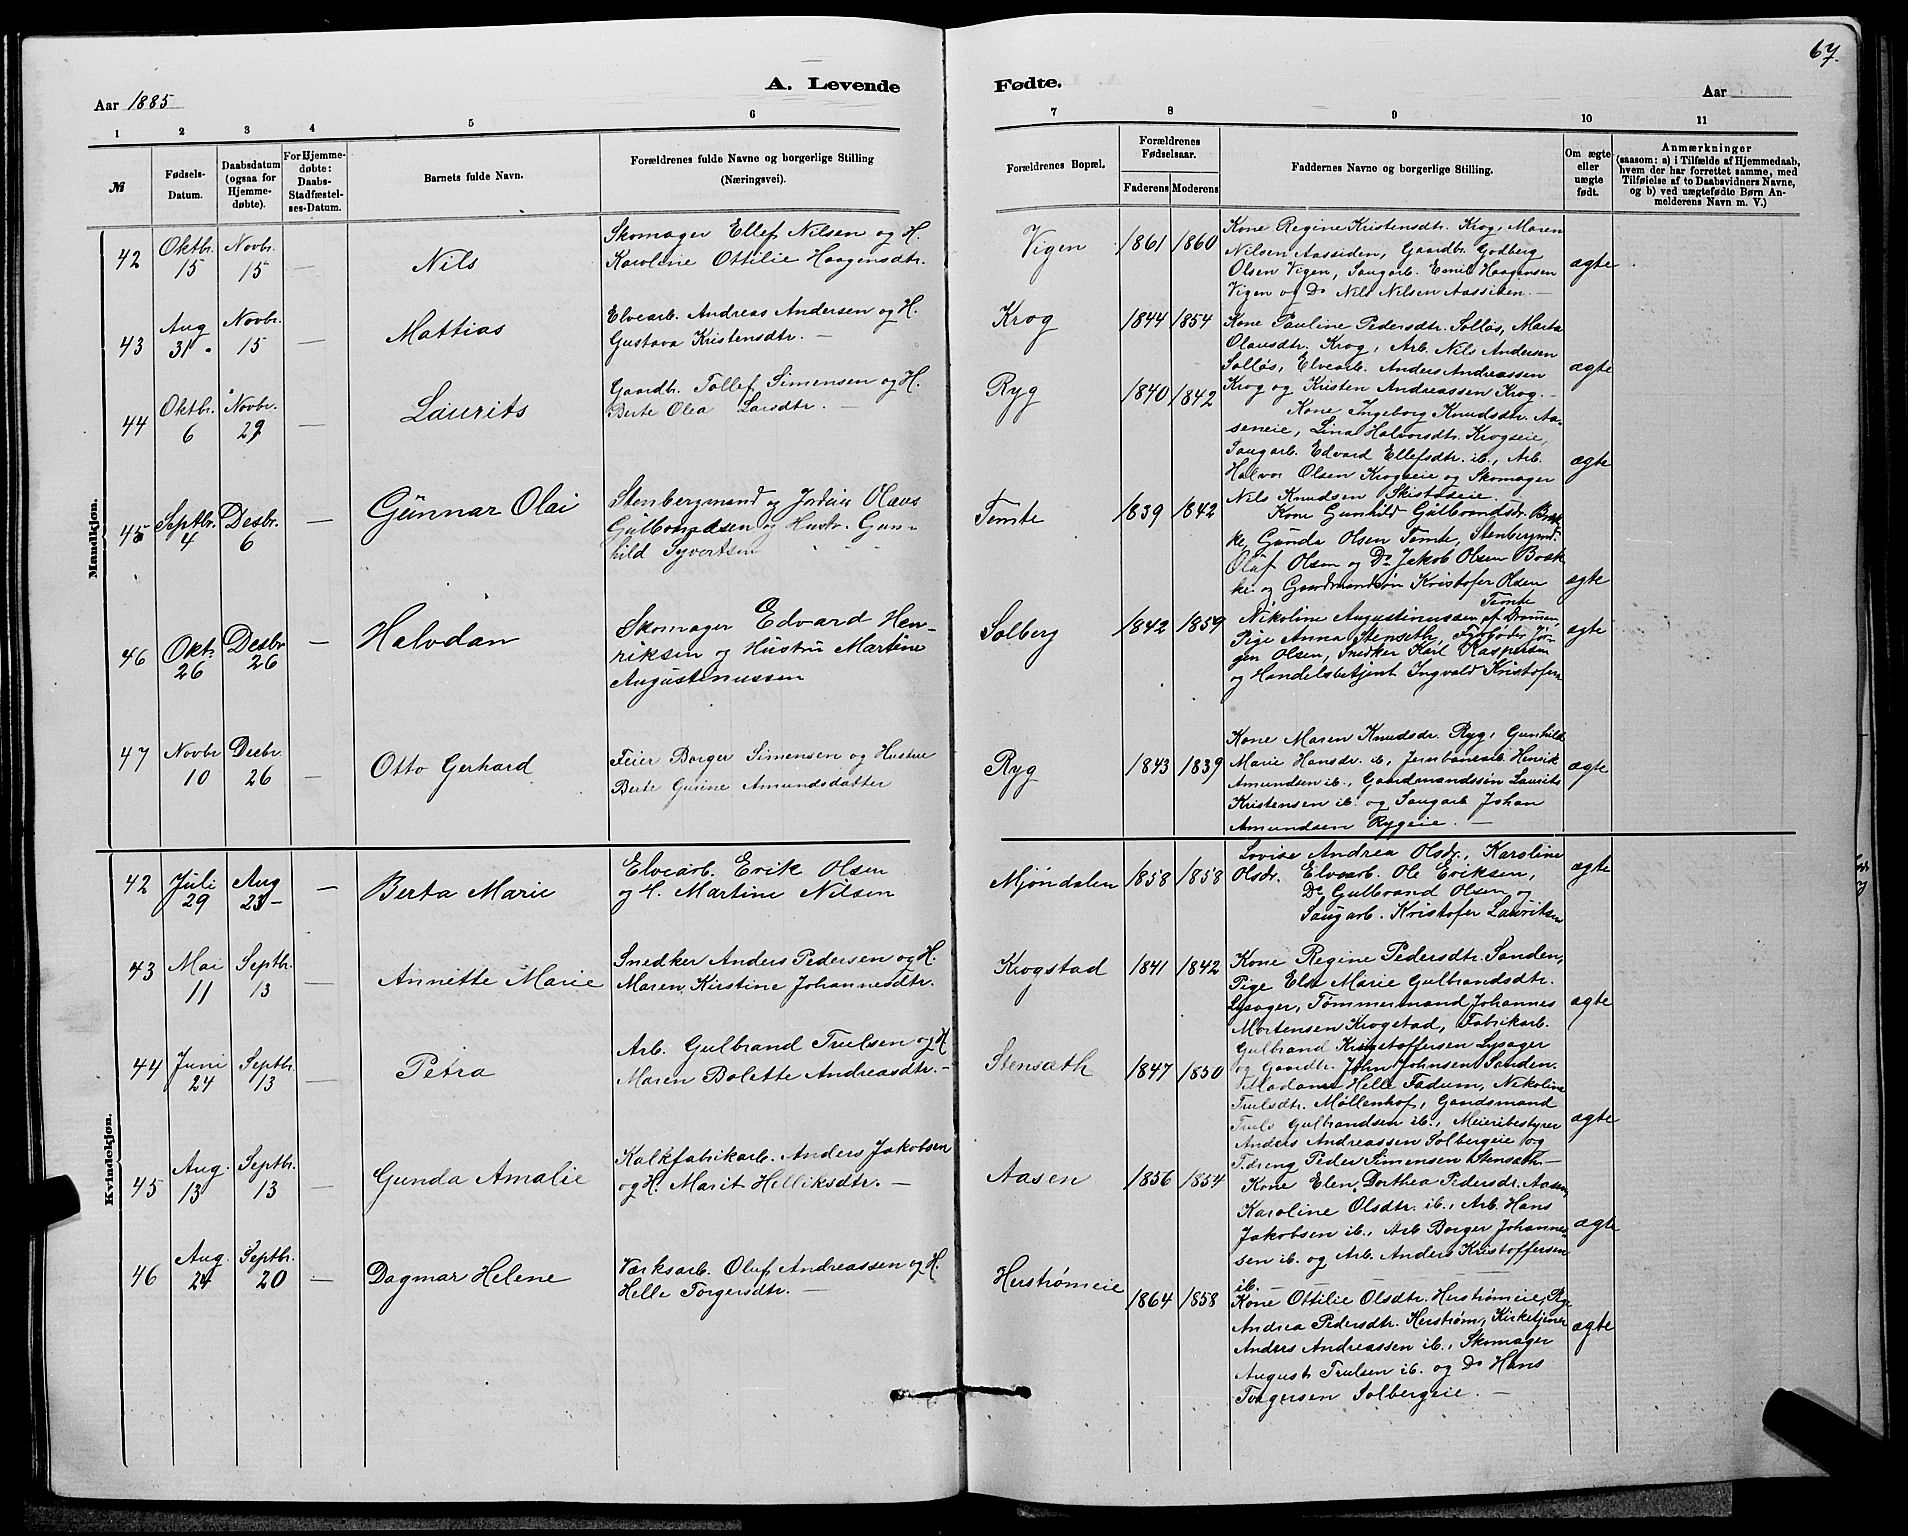 67.
A. Levende Fødte.
Aar 1885
Aar
1 2 3 4 5 6 7 8 9 10 11
№
Fødsels-Datum.
Daabsdatum (ogsaa for Hjemme-døbte).
For Hjemme-døbte: Daabs-Stadfæstel-ses-Datum.
Barnets fulde Navn.
Forældrenes fulde Navne og borgerlige Stilling (Næringsvei).
Forældrenes Bopæl.
Forældrenes Fødselsaar.
Faderens Moderens
Faddernes Navne og borgerlige Stilling.
Om ægte eller uægte født.
Anmærkninger
(saasom: a) i Tilfælde af Hjemmedaab,
hvem der har forrettet samme, med
Tilføielse af to Daabsvidners Navne,
og b) ved uægtefødte Børn An-
melderens Navn m. V.)
Mandkjøn.
42 Oktbr. 15 Novbr. 15 — Nils
Skomager Ellef Nilsen og H.
Karoline Ottilie Haagensdtr.
Vigen 1861 1860
Kone Regine Kristensdtr. Krog, Maren
Nilsen Aassiden, Gaardbr. Godberg
Olsen Vigen, Saugarb. Emil Haagensen
Vigen og Do Nils Nilsen Aassiden. —
ægte
43 Aug 31 Novbr. 15 — Mattias
Elvearb. Andreas Andersen og H.
Gustava Kristensdtr. —
Krog 1844 1854
Kone Pauline Pedersdtr. Solløs, Marta
Olausdtr. Krog, Arb. Nils Andersen
Solløs, Elvearb. Anders Andreassen
Krog og Kristen Andreassen Krog. —
ægte
44 Oktbr. 6 Novbr. 29 — Laurits
Gaardbr. Tollef Simensen og H.
Berte Olea Larsdtr. —
Ryg 1840 1842
Kone Ingeborg Knudsdtr. Aa-
seneie, Lina Halvorsdtr. Krogseie,
Saugarb. Edvard Ellefsdtr. ib., Arb.
Halvor Olsen Krogseie og Skomager
Nils Knudsen Skistadeie.
ægte
45 Septbr. 4 Desbr. 6 — Gunnar Olai
Stenbergmand og Olaus
Gulbrandsen og Hustr. Gun-
hild Syvertsen
Temte 1839 1842
Kone Gunhild Gulbrandsdr. Bak-
ke, Gunda Olsen Temte, Stenbergmd.
Olaf Olsen og Do Jakob Olsen Bak-
ke og Gaardmandsøn Kristofer Olsen
Temte
ægte
46 Okt. 26 Desbr 26 — Halvdan
Skomager Edvard Hen-
riksen og Hustru Martine
Augustinussen
Solberg 1842 1859
Nikoline Augustinussen af Drammen,
Pige Anna Stenseth, Fyrbøder Jør-
gen Olsen, Snedker Karl Kaspersen
og Handelsbetjent Ingvald Kristofers
ægte
47 Novbr 10 Desbr. 26 — Otto Gerhard
Feier Borger Simensen og Hustru
Berte Gurine Amundsdatter
Ryg 1843 1839
Kone Maren Knudsdr. Ryg, Gunhild
Marie Hansdr. ib., Jernbanearb. Henrik
Amundsen ib., Gaardmandssøn Laurits
Kristensen ib. og Saugarb Johan
Amundsen Rygeie. —
ægte
Kvindekjøn.
42 Juli 29 Aug 23 — Berta Marie
Elvearb. Erik Olsen
og H. Martine Nilsen
Mjøndalen 1858 1858
Lovise Andrea Olsdr., Karoline
Olsdr. Elvearb. Ole Eriksen,
Do Gulbrand Olsen og
Saugarb. Kristofer Lauritsen
ægte
43 Mai 11 Septbr. 13 — Annette Marie
Snedker Anders Pedersen og H.
Maren Kirstine Johannesdtr.
Krogstad 1841 1842
Kone Regine Pedersdtr. Sanden,
Pige Else Marie Gulbrandsdtr.
Lysager, Tømmermand Johannes
Mortensen Krogstad, Fabrikarb.
Gulbrand Kristoffersen Lysager
og Gaardtr. John Johnsen Sanden.
ægte
44 Juni 24 Septbr. 13 — Petra
Arb. Gulbrand Trulsen og H
Maren Bolette Andreasdtr. —
Stensæth 1847 1850
Madame Helle Fadum, Nikoline
Trulsdtr. Møllenhof, Gaardsmand
Truls Gulbrandsen ib., Meieribestyrer
Anders Andreassen Solbergeie og
Tdreng Peder Simensen Stensæth. —
ægte
45 Aug. 13 Septbr. 13 — Gunda Amalie
Kalkfabrikarb. Anders Jakobsen
og H. Marit Helliksdtr. —
Aasen 1856 1854
Kone Elen Dorthea Pedersdr. Aasen,
Karoline Olsdtr. ib., Arb. Hans
Jakobsen ib., Arb Borger Johannes-
sen ib. og Arb. Anders Kristoffersen
ib. —
ægte
46 Aug. 24 Septbr. 20 — Dagmar Helene
Værksarb. Oluf Andreassen og H.
Helle Torgersdtr. —
Herstrømeie 1864 1858
Kone Ottilie Olsdtr. Herstrømeie, Pige
Andrea Pedersdtr. Herstrøm, Kirketjener
Anders Andreassen ib., Skomager
August Trulsen ib. og Do Hans
Torgersen Solbergeie. —
ægte